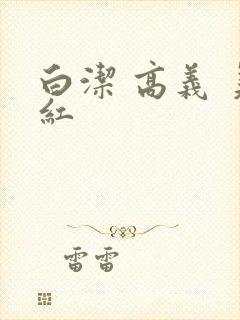 白潔 高義
紅
雷雷